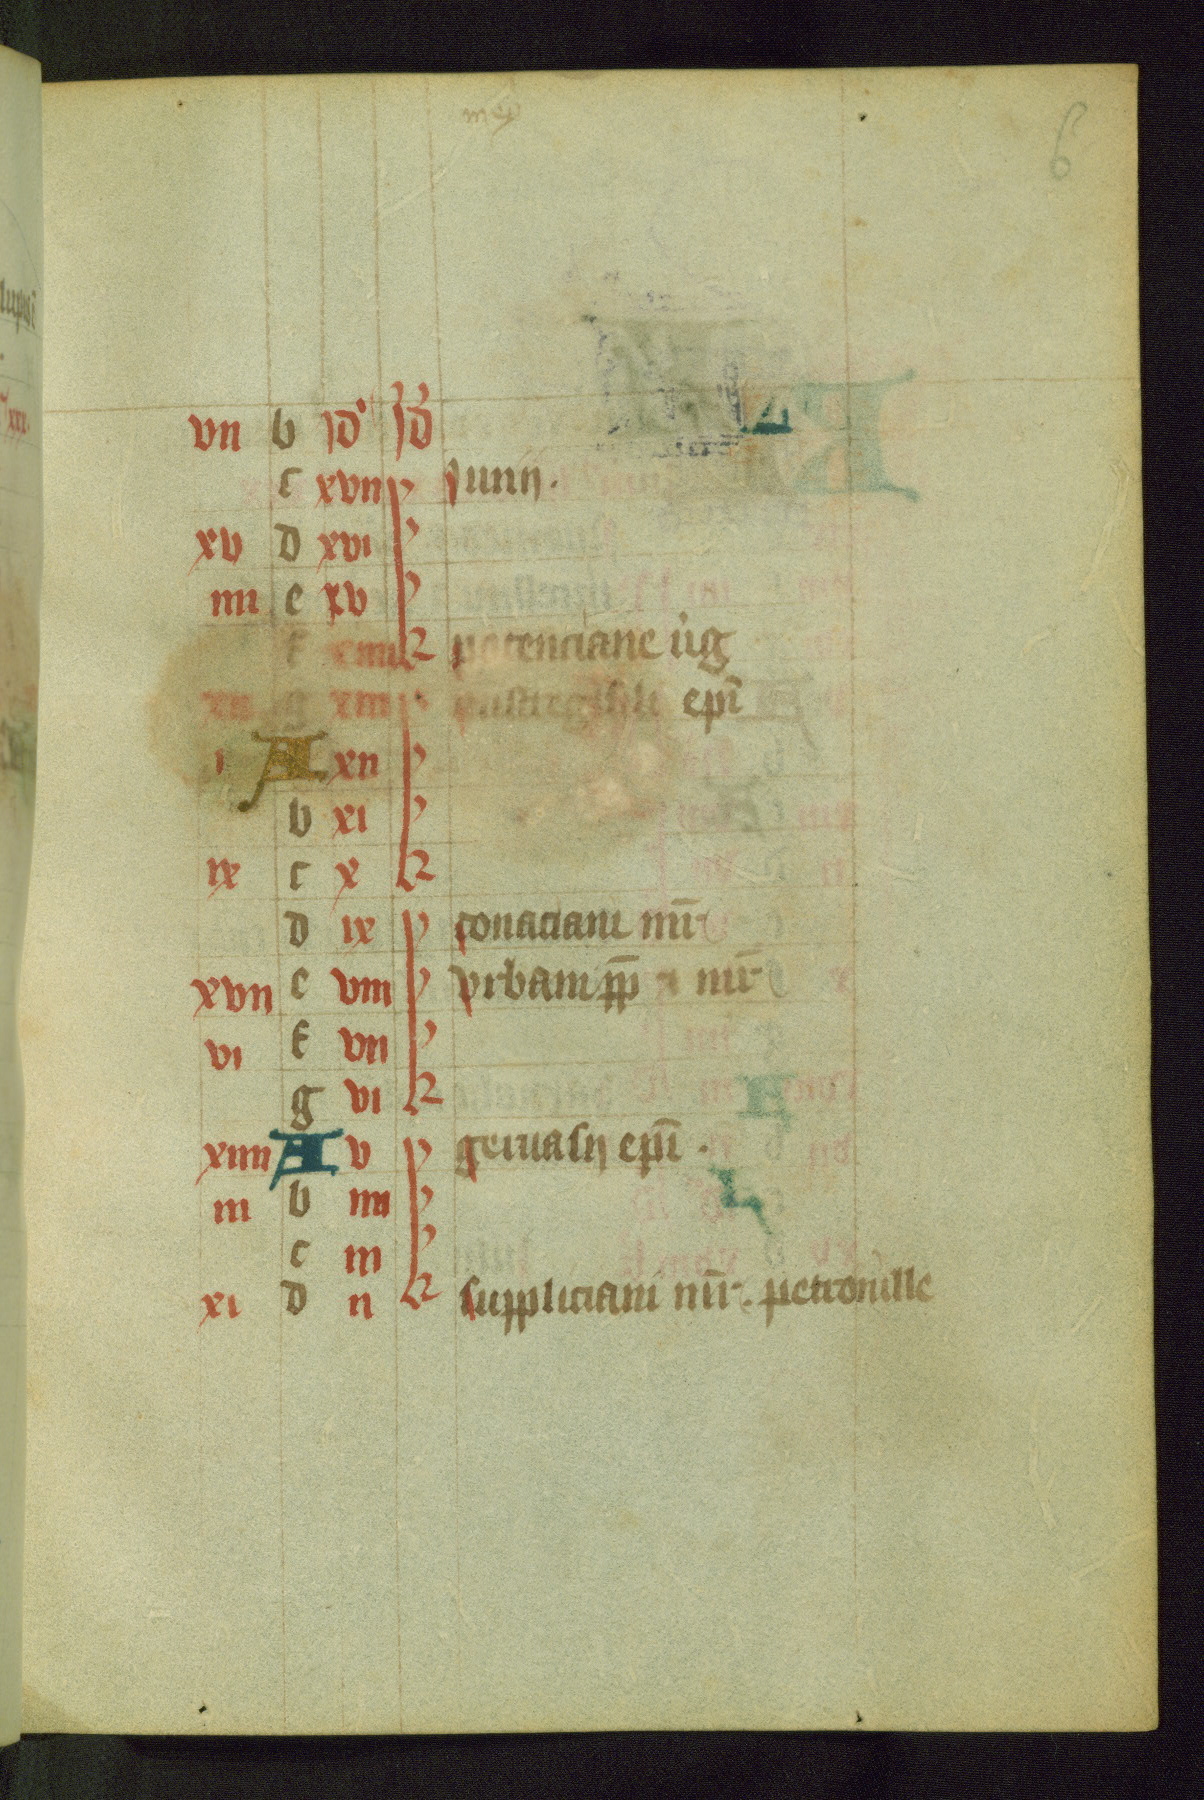 6
vii b id' id'
c xvii k Junii.
xv d xvi k
iiii e xv k
f xiiii kl potenciane v̄g
xii g xiii k epī
i A xii k
b xi k
ix c x kl
d ix k donaciani mr̄
xvii e viii k vrbani pp̄ ⁊ mr̄
vi f vii k
g vi kl
xiiii A v k geruasii epī.
iii b iiii k
c iii k
xi d ii kl suppliciani mr̄. petronille